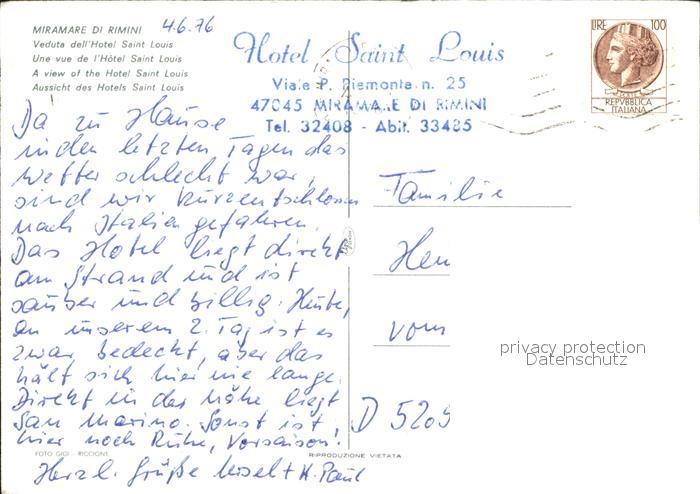 MIRAMARE DI RIMINI 4.6.76
Veduta dell'Hotel Saint Louis
Une vue de l'Hôtel Saint Louis
A view of the Hotel Saint Louis
Aussicht des Hotels Saint Louis
Hotel Saint Louis
Viale P. Piemonte n. 25
47045 MIRAMARE DI RIMINI
Tel. 32408 - Abit. 33485
LIRE 100
REPVBBLICA
ITALIANA
Da zu Hause
in den letzten Tagen das
Wetter schlecht war,
sind wir kurzentschlossen
nach Italien gefahren.
Das Hotel liegt direkt
am Strand und ist
sauber und billig. Heute,
an unserem 2. Tag ist es
zwar bedeckt, aber das
hält sich hier nie lange.
Direkt in der Nähe liegt
San Marino. Sonst ist
hier noch Ruhe, Vorsaison!
Herzl. Grüße + H. Paul
Familie
Hen
vom
D 5209
privacy protection
Datenschutz
FOTO GIGI - RICCIONE
RIPRODUZIONE VIETATA